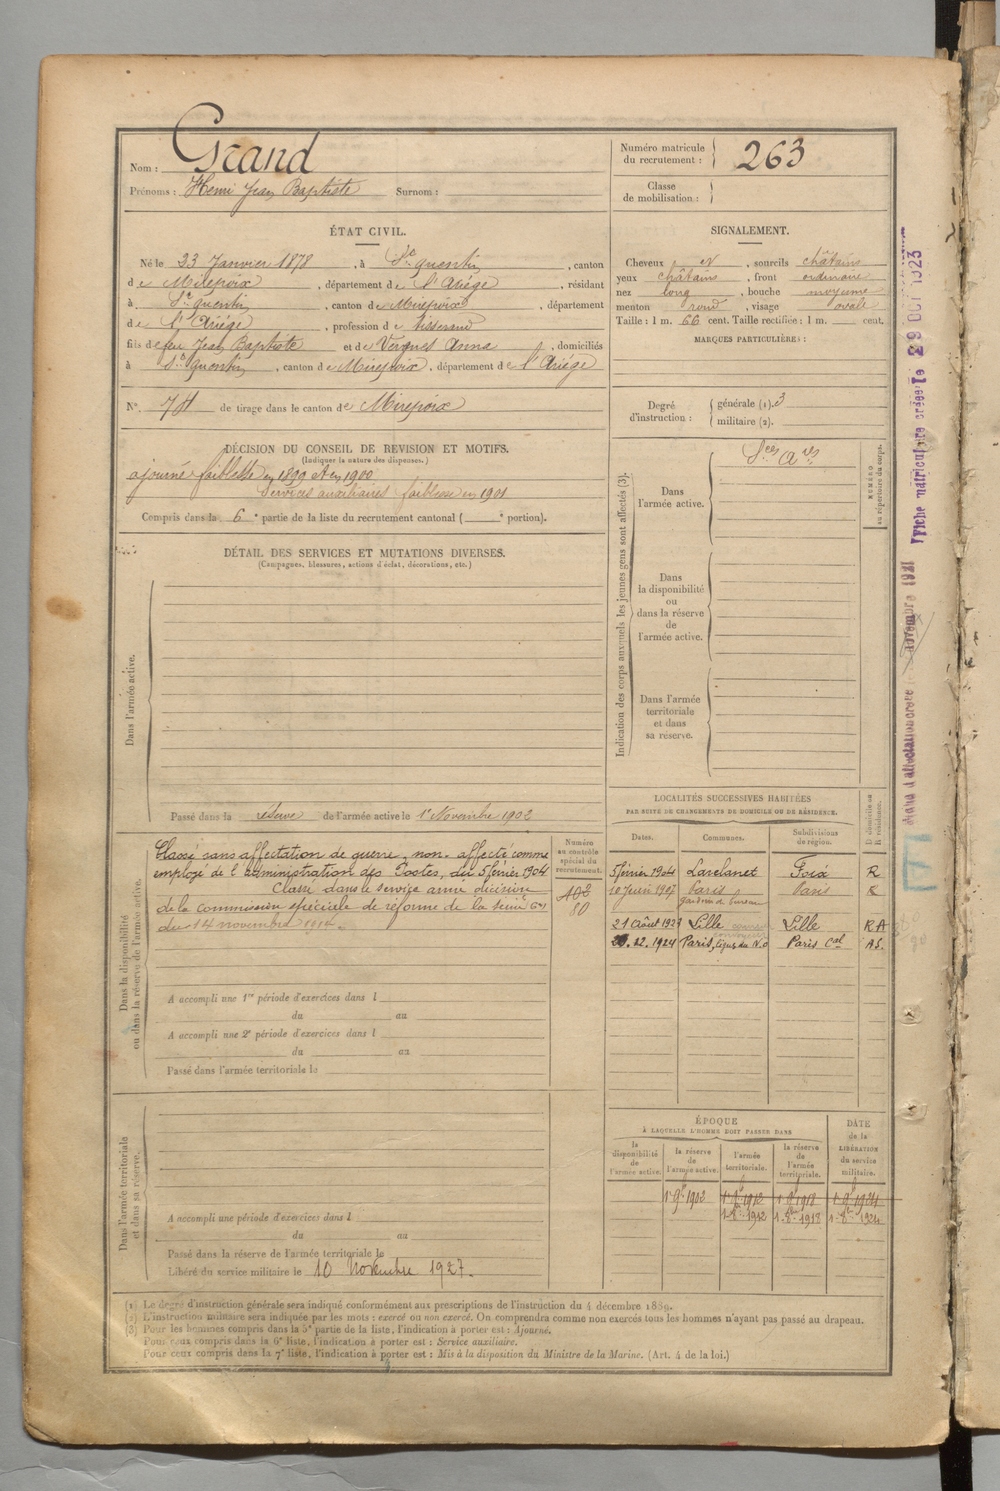 Nom : Grand
Prénoms : Henri Jean Baptiste Surnom :
Numéro matricule du recrutement : 263
Classe de mobilisation :
ÉTAT CIVIL.
Né le 23 Janvier 1878, à Ste quentin, canton
de Mirepoix, département de l'Ariége, résidant
à Ste quentin, canton de Mirepoix, département
de l'Ariége, profession de tisserand
fils de feu Jean Baptiste et de Vergnes Anna, domiciliés
à Ste quentin, canton de Mirepoix, département de l'Ariége
N°. 74 de tirage dans le canton de Mirepoix
SIGNALEMENT.
Cheveux et, sourcils châtains
yeux châtains, front ordinaire
nez long, bouche moyenne
menton rond, visage ovale
Taille : 1 m. 66 cent. Taille rectifiée : 1 m. cent.
MARQUES PARTICULIÈRES :
Degré d'instruction : générale (1). 3
militaire (2).
DÉCISION DU CONSEIL DE REVISION ET MOTIFS.
(Indiquer la nature des dispenses.)
ajourné faiblesse en 1899 et en 1900
Services auxiliaires faiblesse en 1901
Compris dans la 6e partie de la liste du recrutement cantonal ( e portion).
DÉTAIL DES SERVICES ET MUTATIONS DIVERSES.
(Campagnes, blessures, actions d'éclat, décorations, etc.)
Dans l'armée active.
Passé dans la réserve de l'armée active le 1er Novembre 1902
Indication des corps auxquels les jeunes gens sont affectés (3).
Dans l'armée active.
Ses Ares
Dans la disponibilité ou dans la réserve de l'armée active.
Dans l'armée territoriale et dans sa réserve.
NUMÉRO au répertoire du corps.
Dans la disponibilité ou dans la réserve de l'armée active.
Classé sans affectation de guerre, non affecté comme
employé de l'administration des Postes, du 5 février 1904
Classé dans le service armé décision
de la commission spéciale de réforme de la Seine
du 14 novembre 1914.
Numéro au contrôle spécial du recrutement.
80
A accompli une 1re période d'exercices dans l
du au
A accompli une 2e période d'exercices dans l
du au
Passé dans l'armée territoriale le
LOCALITÉS SUCCESSIVES HABITÉES
PAR SUITE DE CHANGEMENTS DE DOMICILE OU DE RÉSIDENCE.
Dates. Communes. Subdivisions de région. D domicile ou R résidence.
5 février 1904 Lavelanet Foix R
10 Juin 1907 Paris Paris R
gardien de bureau
21 Août 1923 Lille Lille RA
20.12.1924 Paris, ligne du N.O Paris Cal AS.
Dans l'armée territoriale et dans sa réserve.
A accompli une période d'exercices dans l
du au
Passé dans la réserve de l'armée territoriale le
Libéré du service militaire le 10 Novembre 1927.
ÉPOQUE
À LAQUELLE L'HOMME DOIT PASSER DANS
la disponibilité de l'armée active.
la réserve de l'armée active.
l'armée territoriale.
la réserve de l'armée territoriale.
DATE de la LIBÉRATION du service militaire.
1er 9bre 1902 1er 9bre 1912 1er 9bre 1918 1er 9bre 1924
1er 8bre 1912 1er 8bre 1918 1er 8bre 1924
(1) Le degré d'instruction générale sera indiqué conformément aux prescriptions de l'instruction du 4 décembre 1889.
(2) L'instruction militaire sera indiquée par les mots : exercé ou non exercé. On comprendra comme non exercés tous les hommes n'ayant pas passé au drapeau.
(3) Pour les hommes compris dans la 5e partie de la liste, l'indication à porter est : Ajourné.
Pour ceux compris dans la 6e liste, l'indication à porter est : Service auxiliaire.
Pour ceux compris dans la 7e liste, l'indication à porter est : Mis à la disposition du Ministre de la Marine. (Art. 4 de la loi.)
Fiche matriculaire créée le 29 OCT 1923
novembre 1921